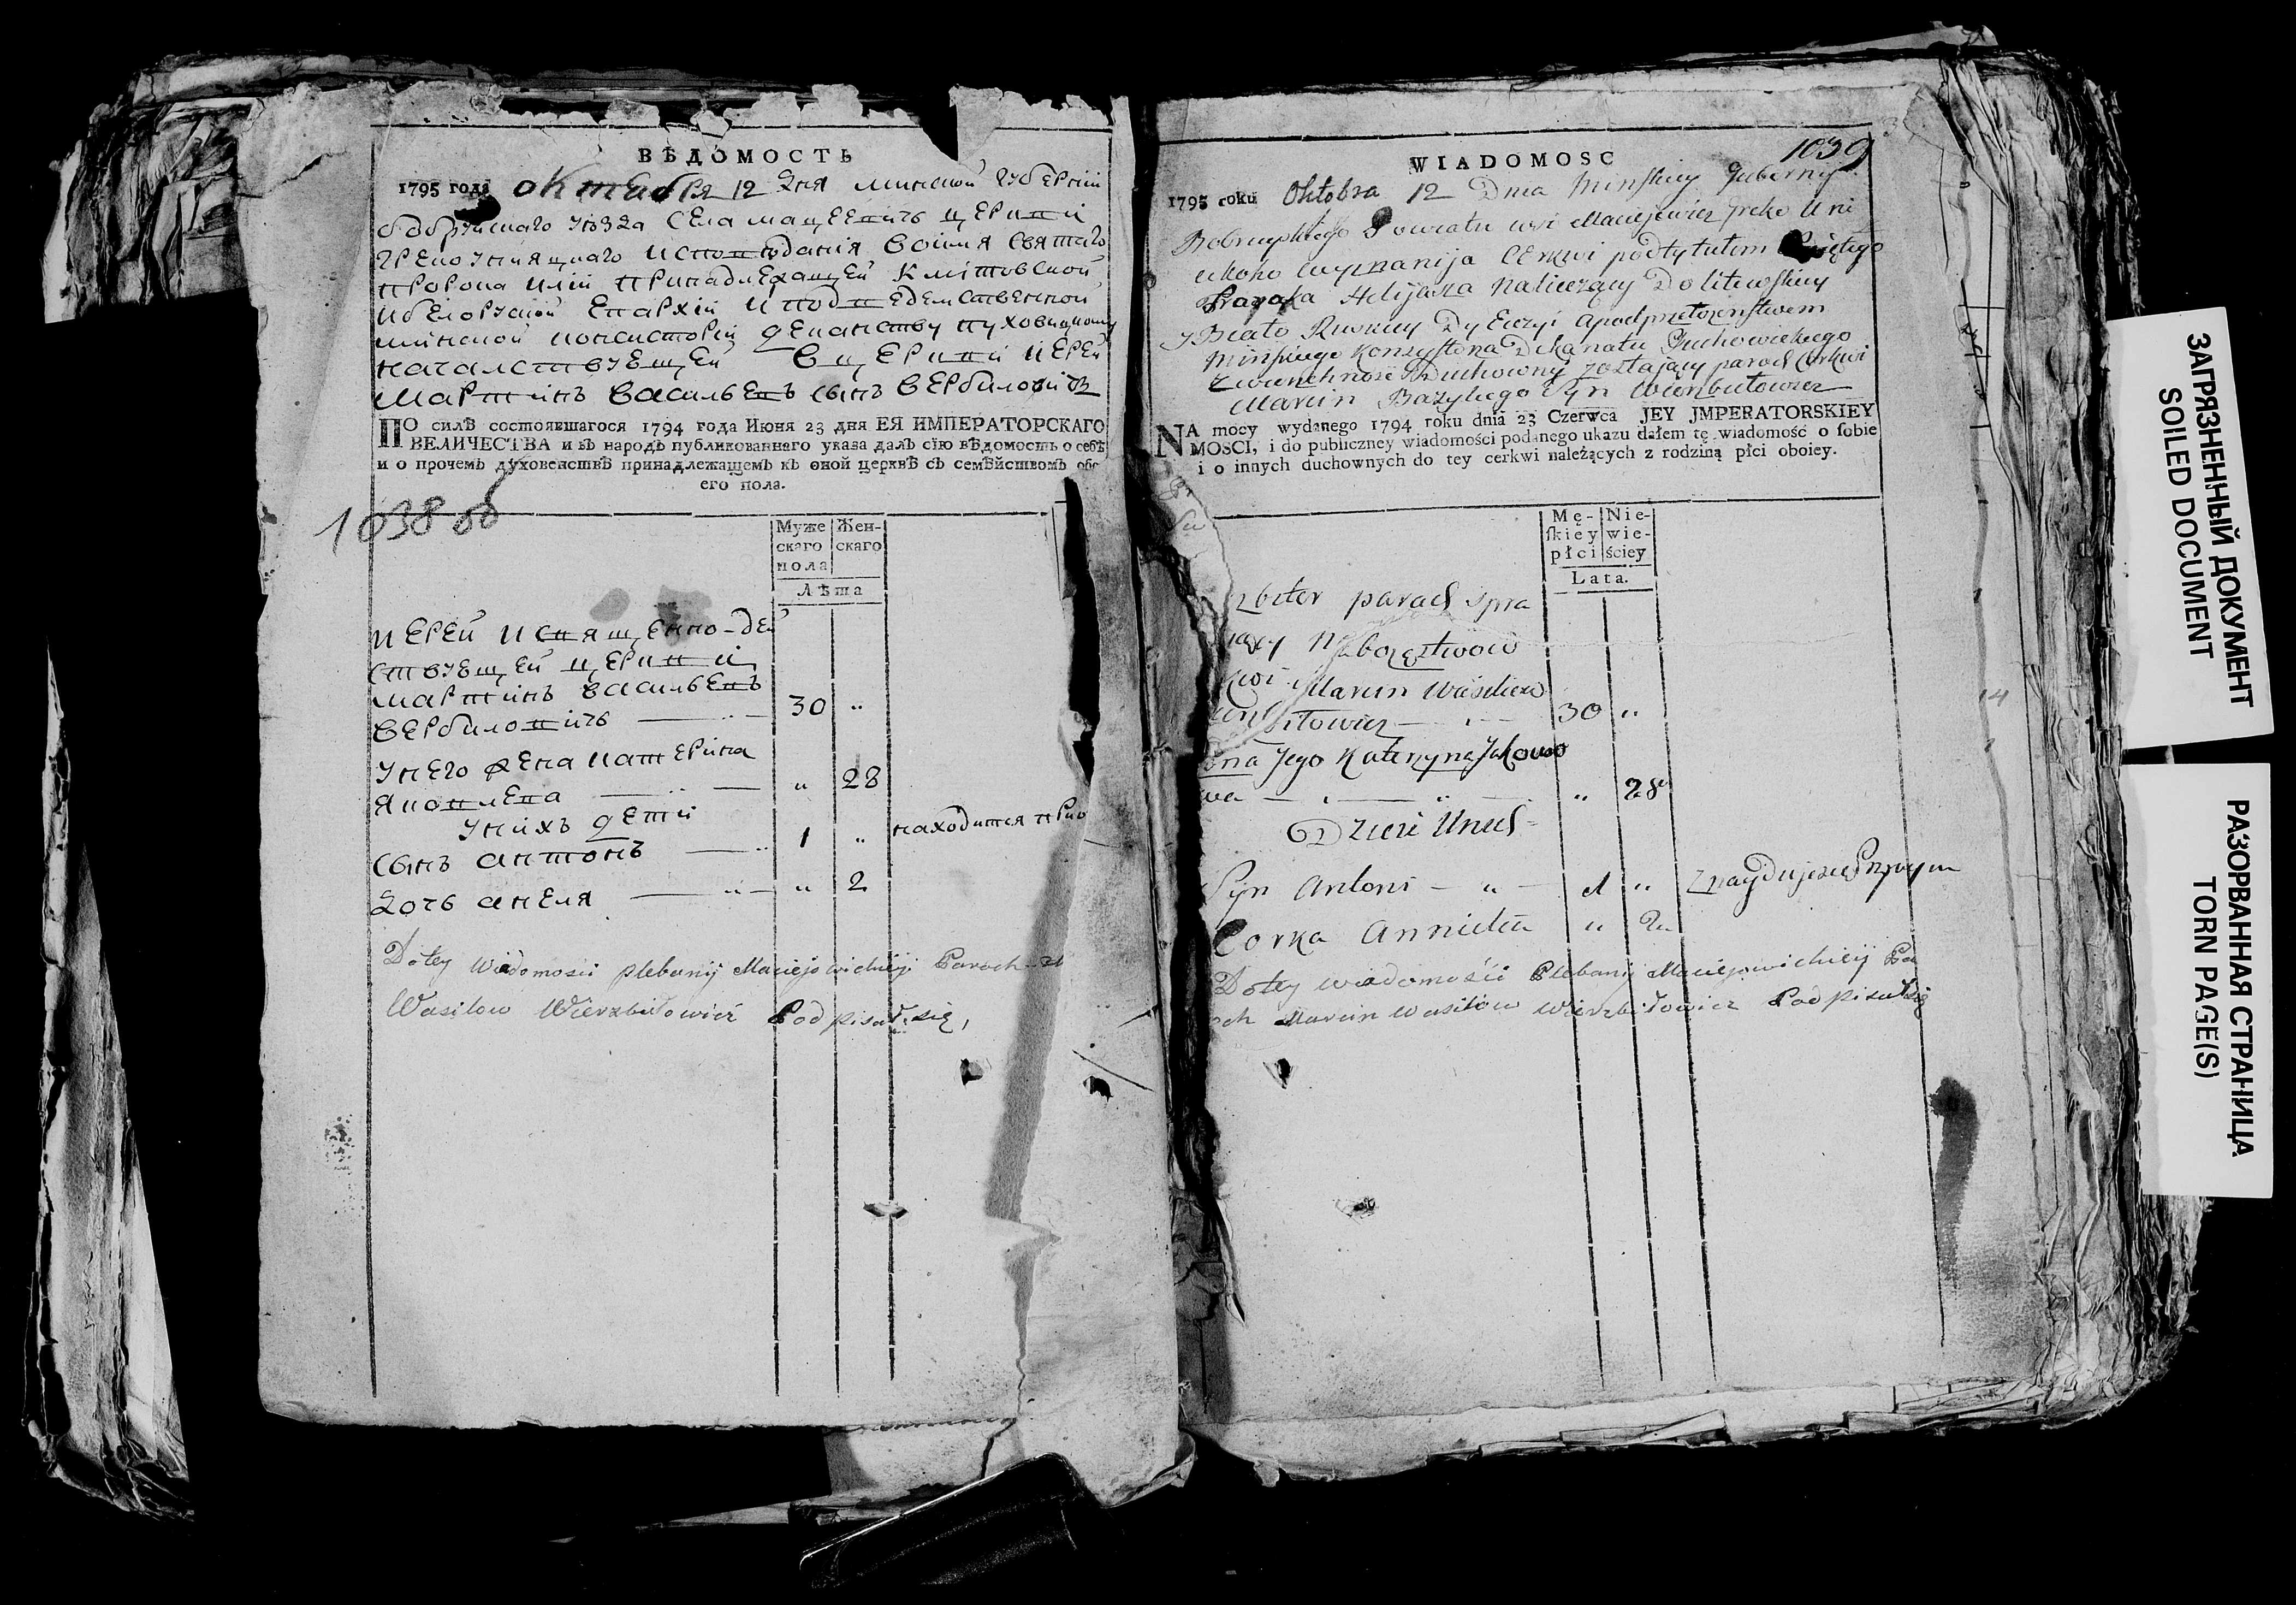 ВѢДОМОСТЬ
1795 года октебря 12 дня минской губернiи
бобруйскаго уѣзда села мацеевичъ церкви
греко унияцкаго исповѣданiя во имя святаго
пророка илiи принадлежащей к литовской
и белоруской епархiи и под ведемственной
минской консисторiи деканству пуховицкому
началствуещей в церкви иерей
мартинъ василевъ сынъ вербиловичъ
ПО силѣ состоявшагося 1794 года Июня 23 дня ЕЯ ИМПЕРАТОРСКАГО
ВЕЛИЧЕСТВА и въ народъ публикованнаго указа далъ сїю вѣдомость о себѣ
и о прочемъ духовенствѣ принадлежащемъ къ оной церквѣ съ семѣйствомъ обо
его пола.
1038 об
Муже скаго пола
Жен- скаго
Лѣта
иерей и священно-де
ствуещей церкви
мартинъ василевъ
вербиловичъ 30 "
у него жена катерина
яковлева " 28
у нихъ дети
сынъ антонъ 1 " находится при
дочь анеля " 2
Do tey Wiadomosci plebanij Maciejowickiej Paroch
Wasilow Wierzbiłowicz Podpisał się,
WIADOMOSC
1039
1795 roku Oktobra 12 Dnia Minskiey Guberny
Bobruyskiego Powiatu wsi Maciejewicz Greko Uni
ckoho wyznanija Cerkwi pod tytułem Świętego
Praroka Helijasza należący Do litewskiey
y Biało Ruskiey Dyecezyi a pod przełożenstwem
Minskiego Konsystorza Dekanatu Puchowickiego
zwierzchność Duchowny zostający paroch Cerkwi
Marcin Bazylego Syn Wierzbiłowicz
NA mocy wydanego 1794 roku dnia 23 Czerwca JEY JMPERATORSKIEY
MOSCI, i do publiczney wiadomości podanego ukazu dałem tę wiadomość o sobie
i o innych duchownych do tey cerkwi należących z rodziną płci oboiey.
Mę- skiey płci
Nie- wie- ściey
Lata.
zbiter paroch spra
Nabozęstwow
Marcin Wasilew
30 "
Jego Kateryna Jakowo
wa " 28
Dzieci Unich
Syn Antoni " 1 " Znayduje się Przy
Corka Annieta " 2
Do tey wiadomości Plebanij Maciejowickiey Pa
och Marcin Wasilow Wierzbiłowicz Podpisał się
ЗАГРЯЗНЕННЫЙ ДОКУМЕНТ
SOILED DOCUMENT
РАЗОРВАННАЯ СТРАНИЦА
TORN PAGE(S)